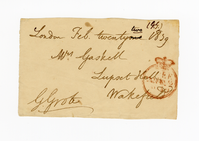 London Feb. twenty two 1839
Mrs Gaskell
Lupset Hall
Wakefield
GGrote